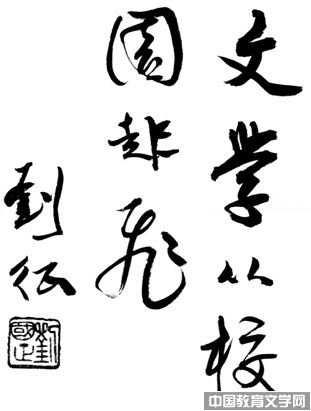 文学从校
园起飞
刘征
刘國正
中国教育文学网